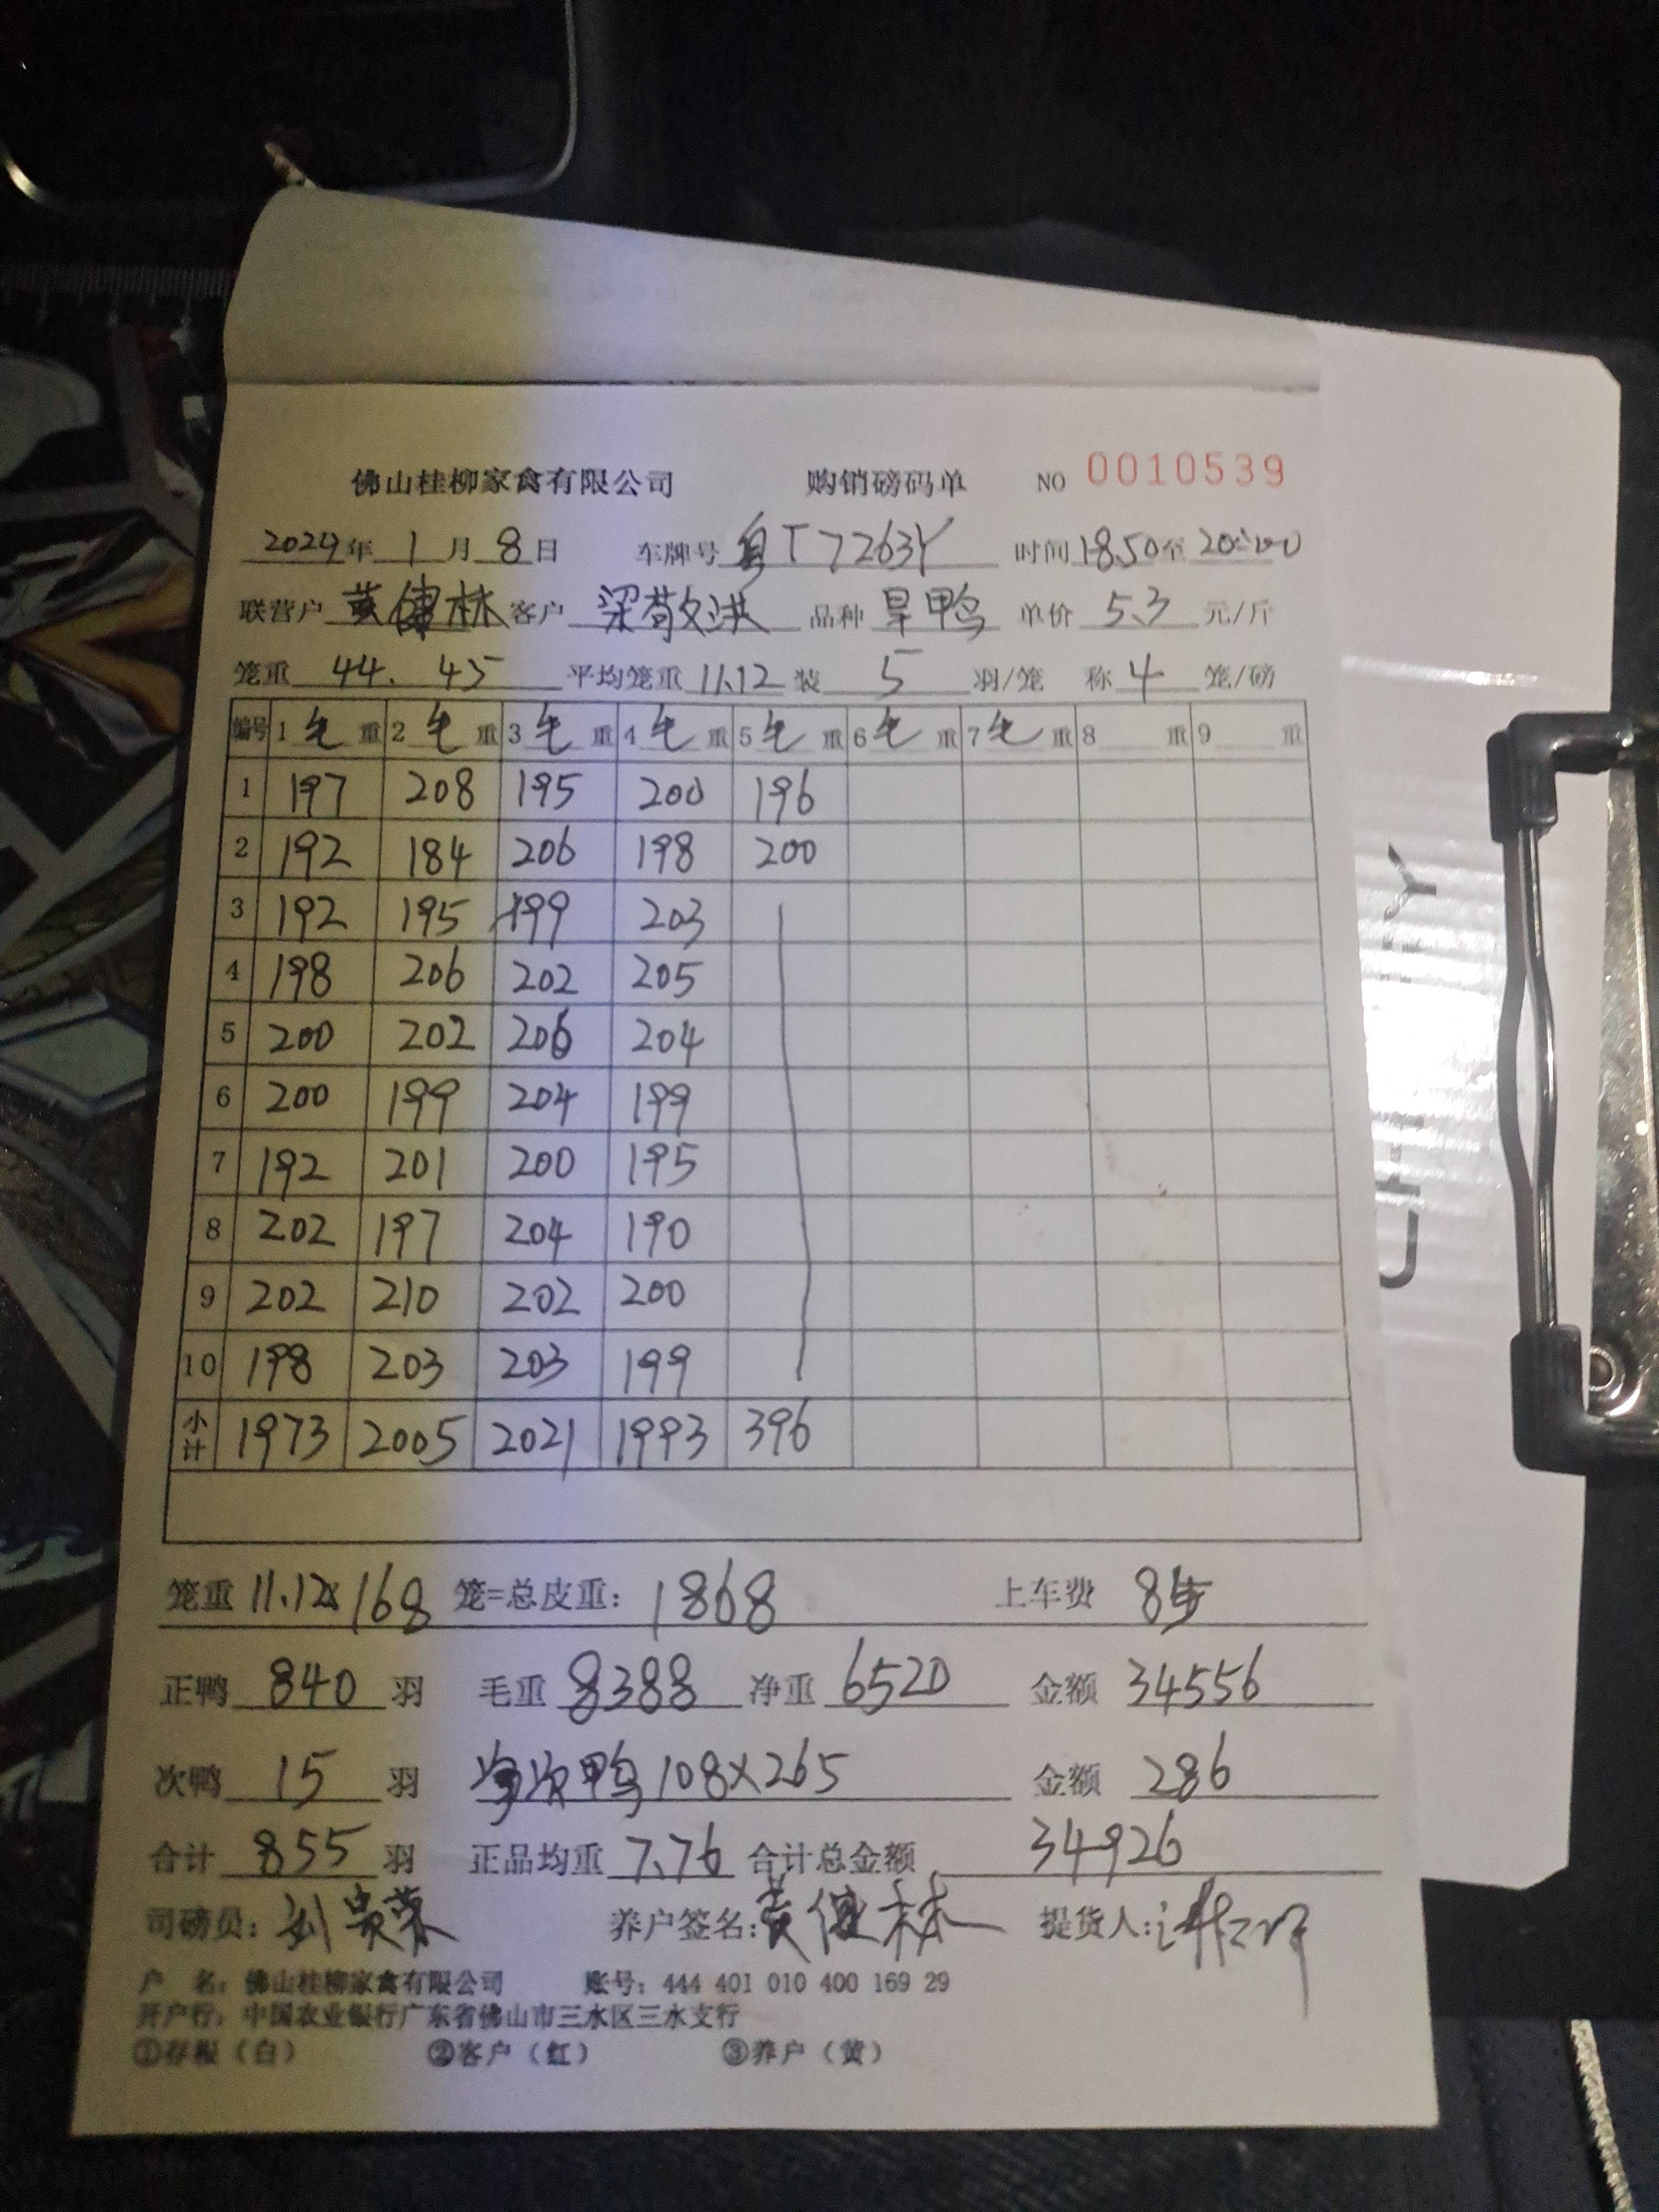 佛山桂柳家禽有限公司 购销磅码单 NO 0010539
2024年 1 月 8 日 车牌号 粤T7263Y 时间 18.50至 20:00
联营户 黄健林 客户 梁敬洪 品种 旱鸭 单价 5.3 元/斤
笼重 44. 45 平均笼重 11.12 装 5 羽/笼 称 4 笼/磅
编号 1 毛 重 2 毛 重 3 毛 重 4 毛 重 5 毛 重 6 毛 重 7 毛 重 8 重 9 重
1 197 208 195 200 196
2 192 184 206 198 200
3 192 195 199 203
4 198 206 202 205
5 200 202 206 204
6 200 199 204 199
7 192 201 200 195
8 202 197 204 190
9 202 210 202 200
10 198 203 203 199
小计 1973 2005 2021 1993 396
笼重 11.12x168 笼=总皮重: 1868 上车费 84
正鸭 840 羽 毛重 8388 净重 6520 金额 34556
次鸭 15 羽 次鸭 108X265 金额 286
合计 855 羽 正品均重 7.76 合计总金额 34926
司磅员: 刘贵荣 养户签名: 黄健林 提货人:
户 名: 佛山桂柳家禽有限公司 账号: 444 401 010 400 169 29
开户行: 中国农业银行广东省佛山市三水区三水支行
①存根（白） ②客户（红） ③养户（黄）